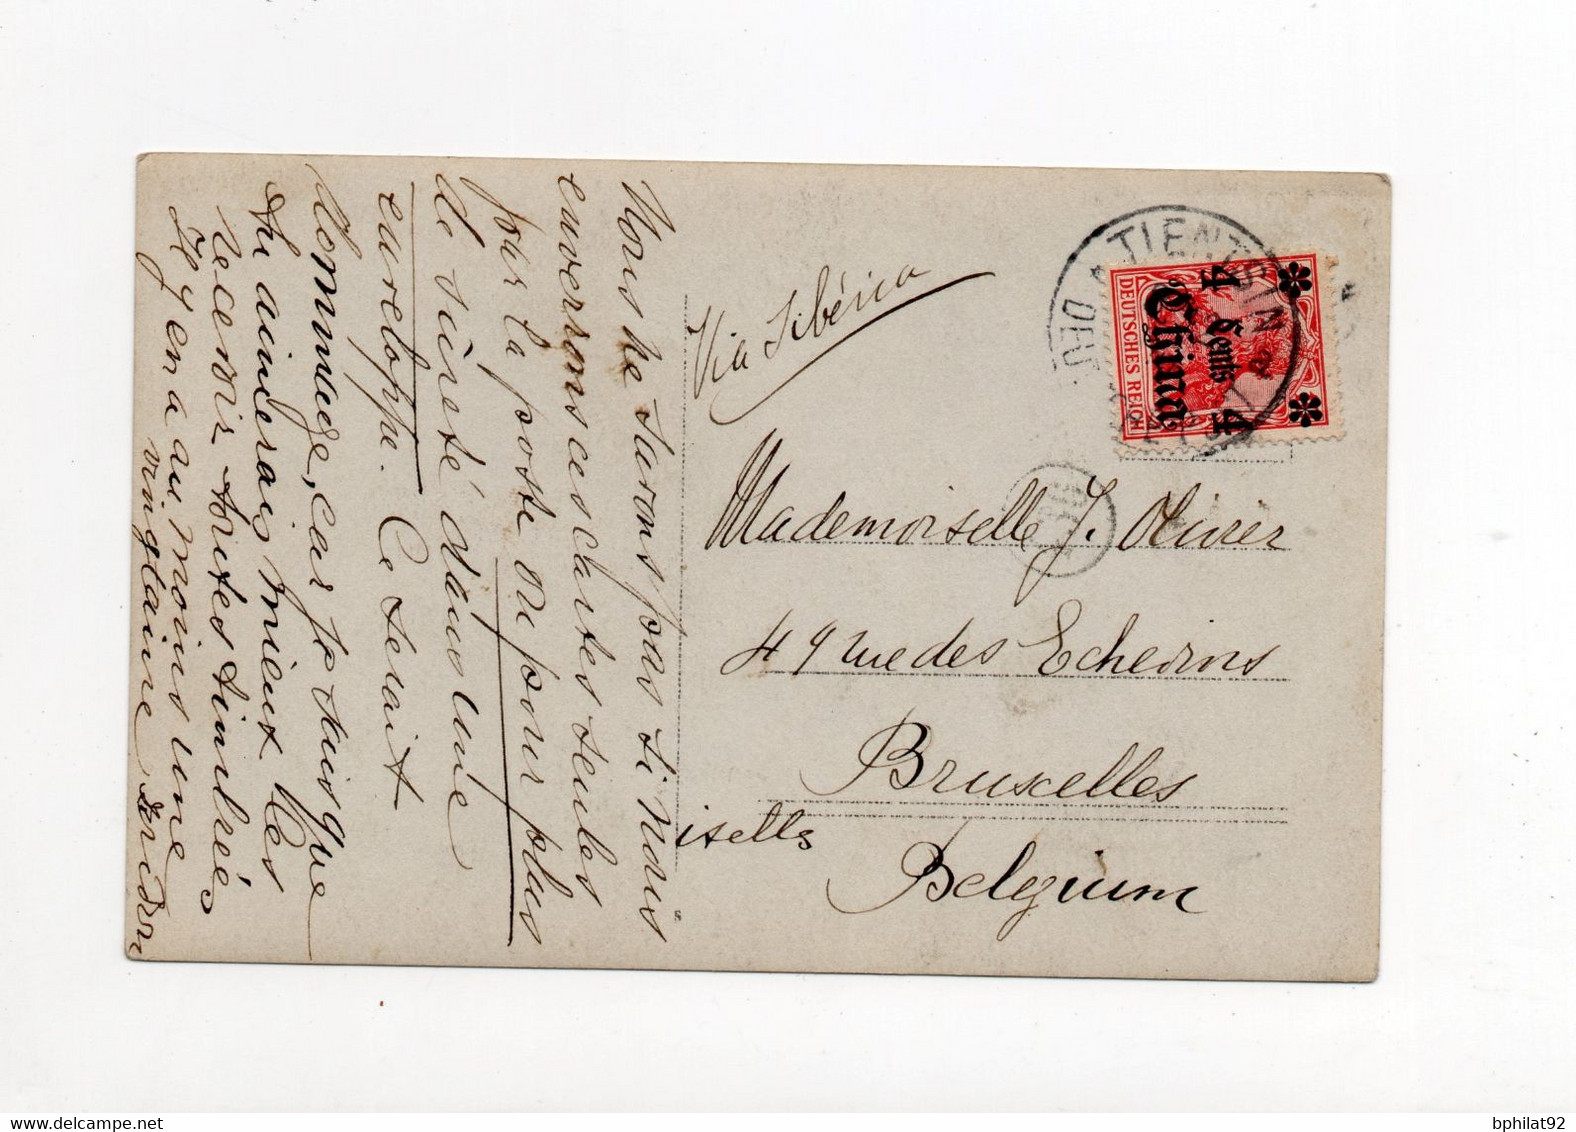 Nous ne savons pas si nous
enverrons ces cartes seules
par la poste ou pour plus
de sûreté dans une
enveloppe. Ce serait
dommage, car je sais que
tu aimerais mieux les
recevoir toutes timbrées
Il y en a au moins une
vingtaine
Via Sibéria
TIENTSIN
DEU
DEUTSCHES REICH
4 Cents 4
China
Mademoiselle J. Olivier
49 rue des Echevins
Bruxelles
ixelles
Belgium
bphilat92